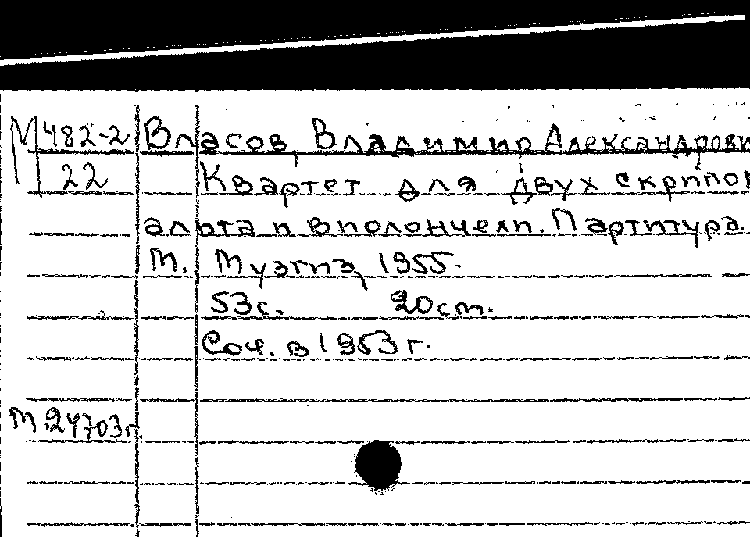 М482-2 Власов, Владимир Александрови
22 Квартет для двух скрипо
альта и виолончели. Партитура.
М. Музгиз, 1955.
53с. 20cm.
Соч. в 1953 г.
М.24703г